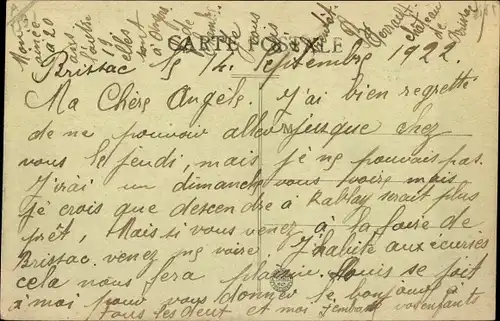 Mon
ainée
a 20
ans
l'autre
19
elles
sont
à
CARTE POSTALE
château
de
Brissac
Brissac le 14 Septembre 1922
Ma Chère Angèle. J'ai bien regretté
de ne pouvoir aller jusque chez
vous le jeudi, mais je ne pouvais pas.
J'irai un dimanche vous voire mais
je crois que descendre à Rablay serait plus
prêt, Mais si vous venez à la foire de
Brissac, venez me voire J'habite aux écuries
cela nous fera plaisir. Louis se joit
à moi pour vous donner le bonjour à
tous les deux et moi j'embrasse vos enfants